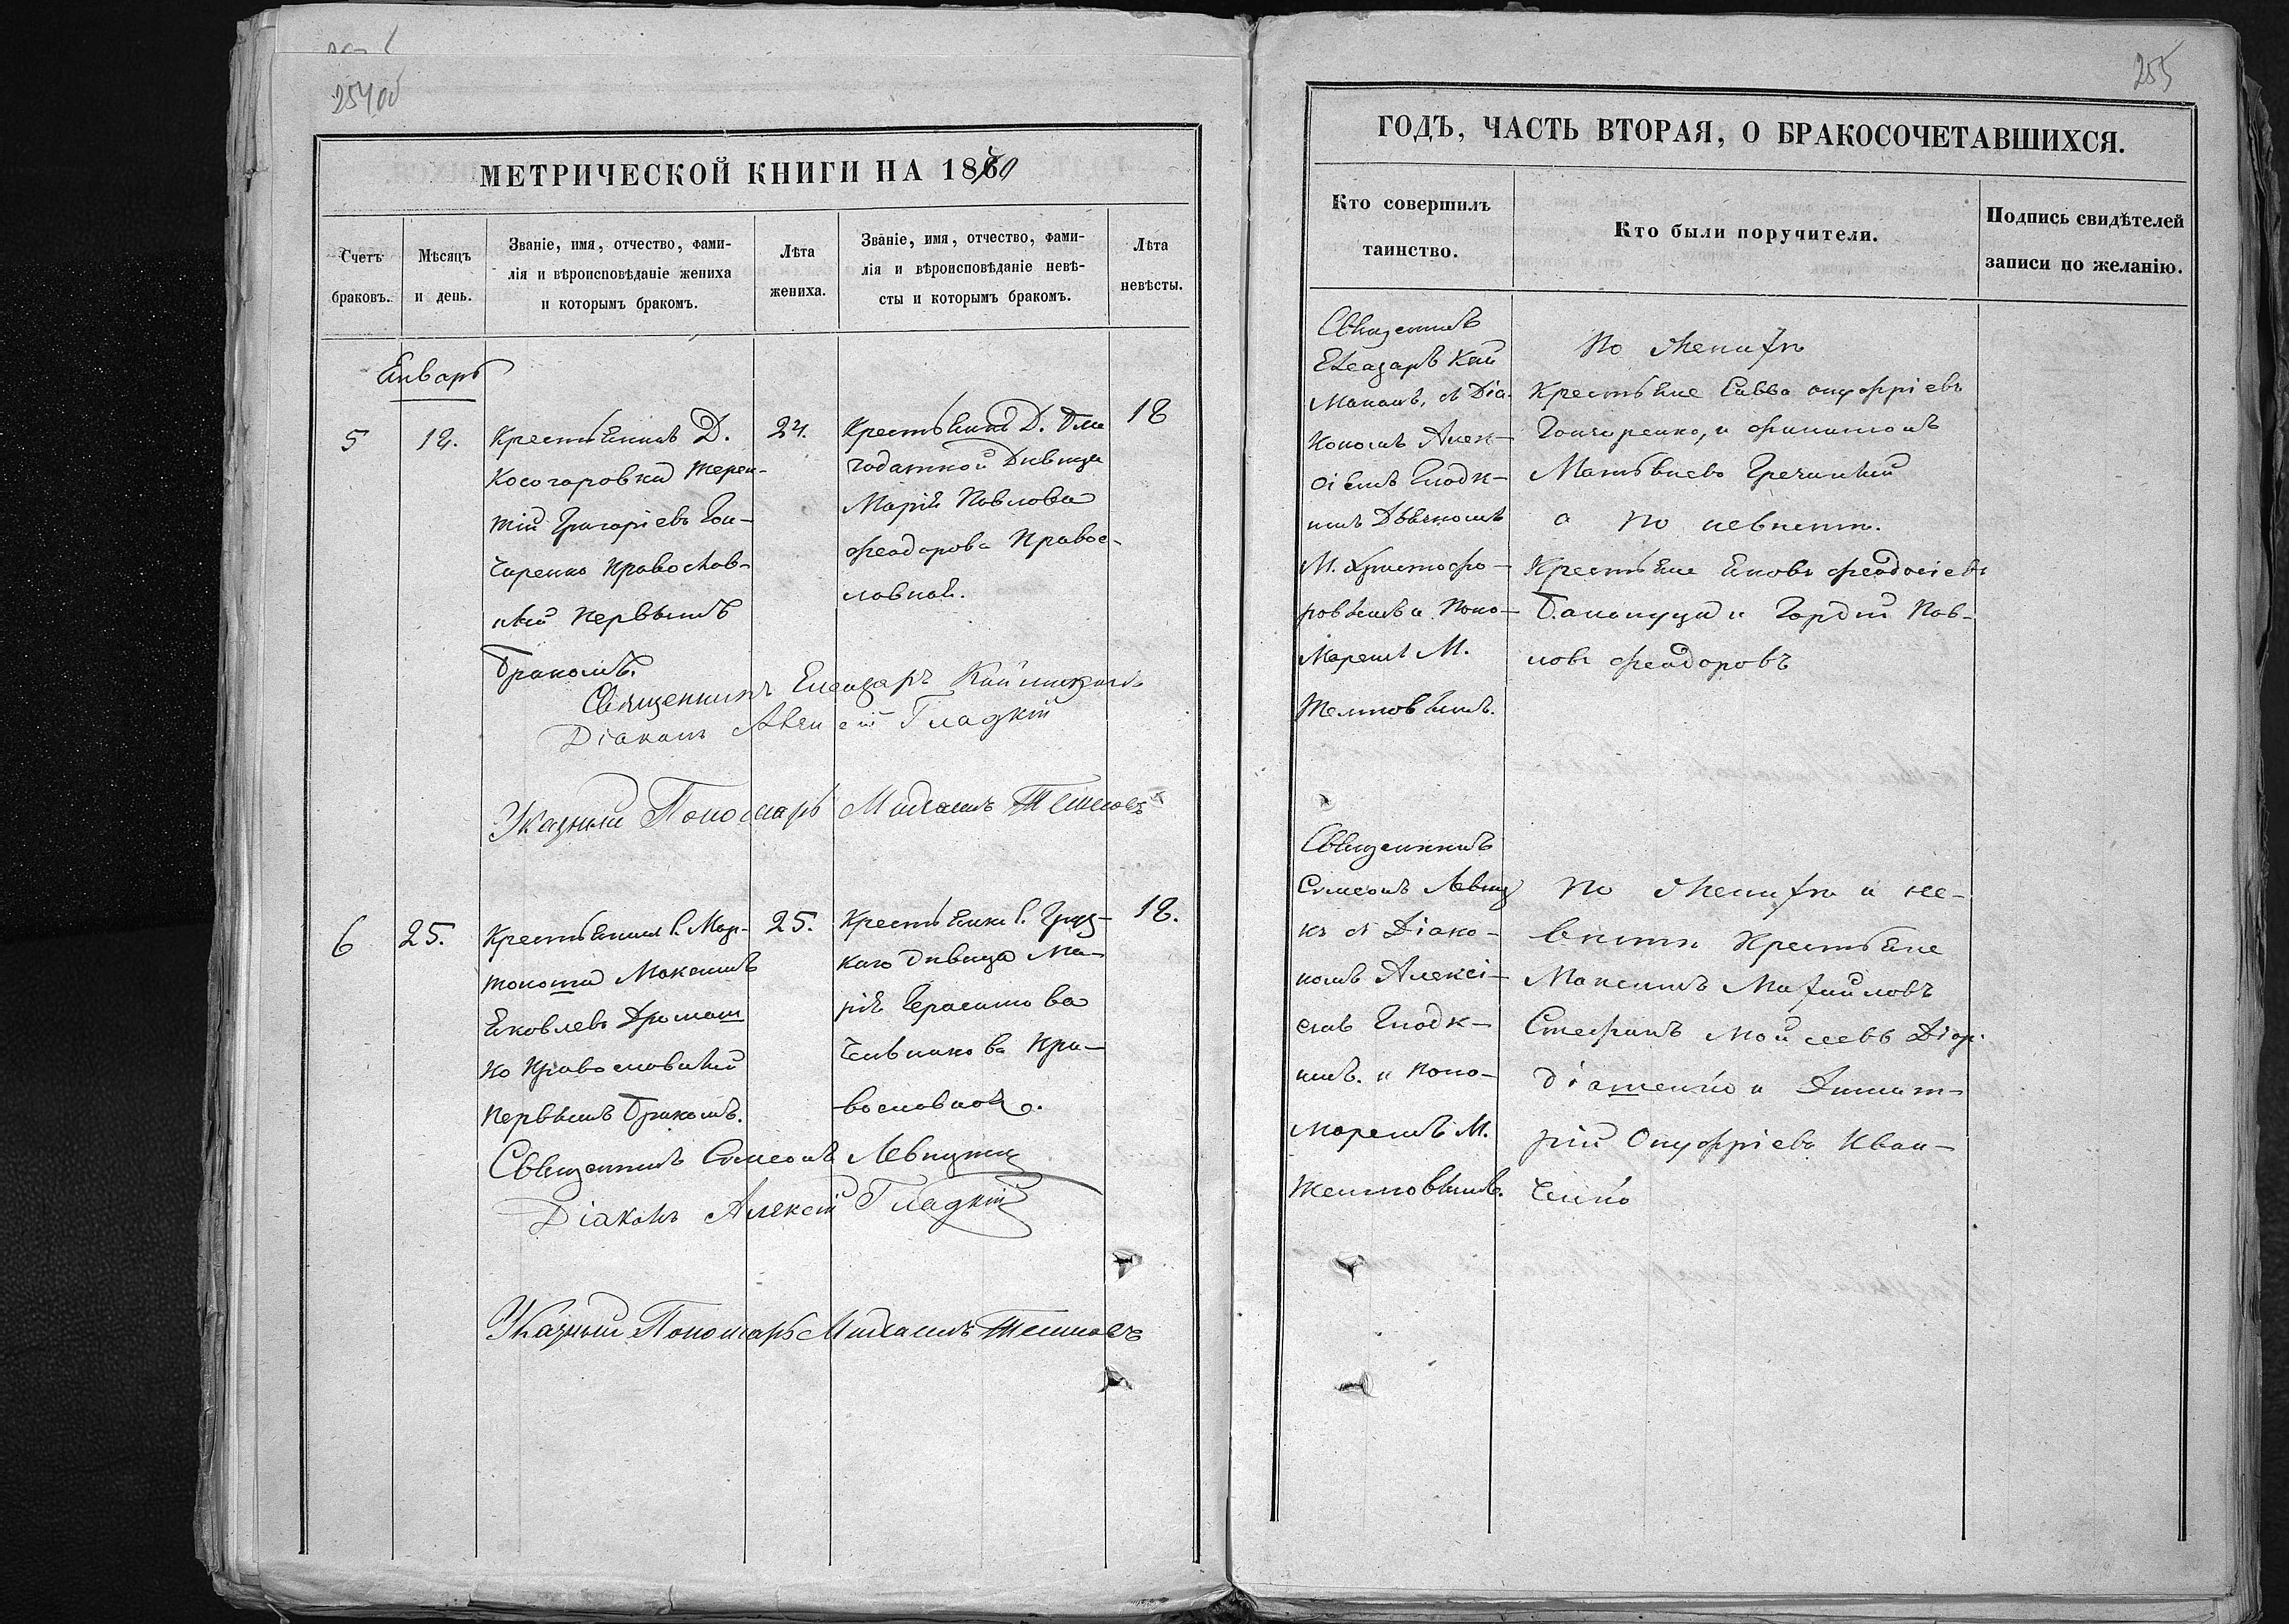 254 об
МЕТРИЧЕСКОЙ КНИГИ НА 1870
Счетъ
браковъ.
Мѣсяцъ
и день.
Званіе, имя, отчество, фами-
лія и вѣроисповѣданіе жениха
и которымъ бракомъ.
Лѣта
жениха.
Званіе, имя, отчество, фами-
лія и вѣроисповѣданіе невѣ-
сты и которымъ бракомъ.
Лѣта
невѣсты.
Январь
5
18.
Крестьянинъ Д.
Косогоровки Терен-
тій Григоріевъ Гон-
чаренко Православ-
ный первымъ
бракомъ.
24.
Крестьянка Д.
годатной Дѣвица
Марія Павлова
Феодорова Правос-
лавная.
18
Священникъ Елеазаръ
Діаконъ Алексій Гладкій
Указный Пономарь Михаилъ Темновъ
6
25.
Крестьянинъ С. Мар-
Максимъ
Яковлевъ
ко Православный
первымъ бракомъ.
25.
Крестьянка С. Груз-
каго дѣвица Ма-
рія Герасимова
Пра-
вославная.
18.
Священникъ Симеонъ Левицкій
Діаконъ Алексій Гладкій
Указный Пономарь Михаилъ Темновъ
255
ГОДЪ, ЧАСТЬ ВТОРАЯ, О БРАКОСОЧЕТАВШИХСЯ.
Кто совершилъ
таинство.
Кто были поручители.
Подпись свидѣтелей
записи по желанію.
Священникъ
Елеазаръ Кай
съ Діа-
кономъ Алек-
сіемъ Гладк-
имъ Дьячкомъ
М. Христофо-
ровымъ и Поно-
маремъ М.
Темновымъ.
По женихѣ
Крестьяне Савва Онуфріевъ
Гончаренко, и Филимонъ
Матвѣевъ Гречаный
а по невѣстѣ.
Крестьяне Яковъ Феодосіевъ
и Гордій Пав-
ловъ Феодоровъ
Священникъ
Симеонъ Левиц
къ съ Діако-
номъ Алексі-
емъ Гладк-
имъ. и Поно-
маремъ М.
Темновымъ.
По женихѣ и не-
вѣстѣ Крестьяне
Максимъ Михайловъ
Стефанъ Моисеевъ
и Димит-
рій Онуфріевъ Иван-
ченко